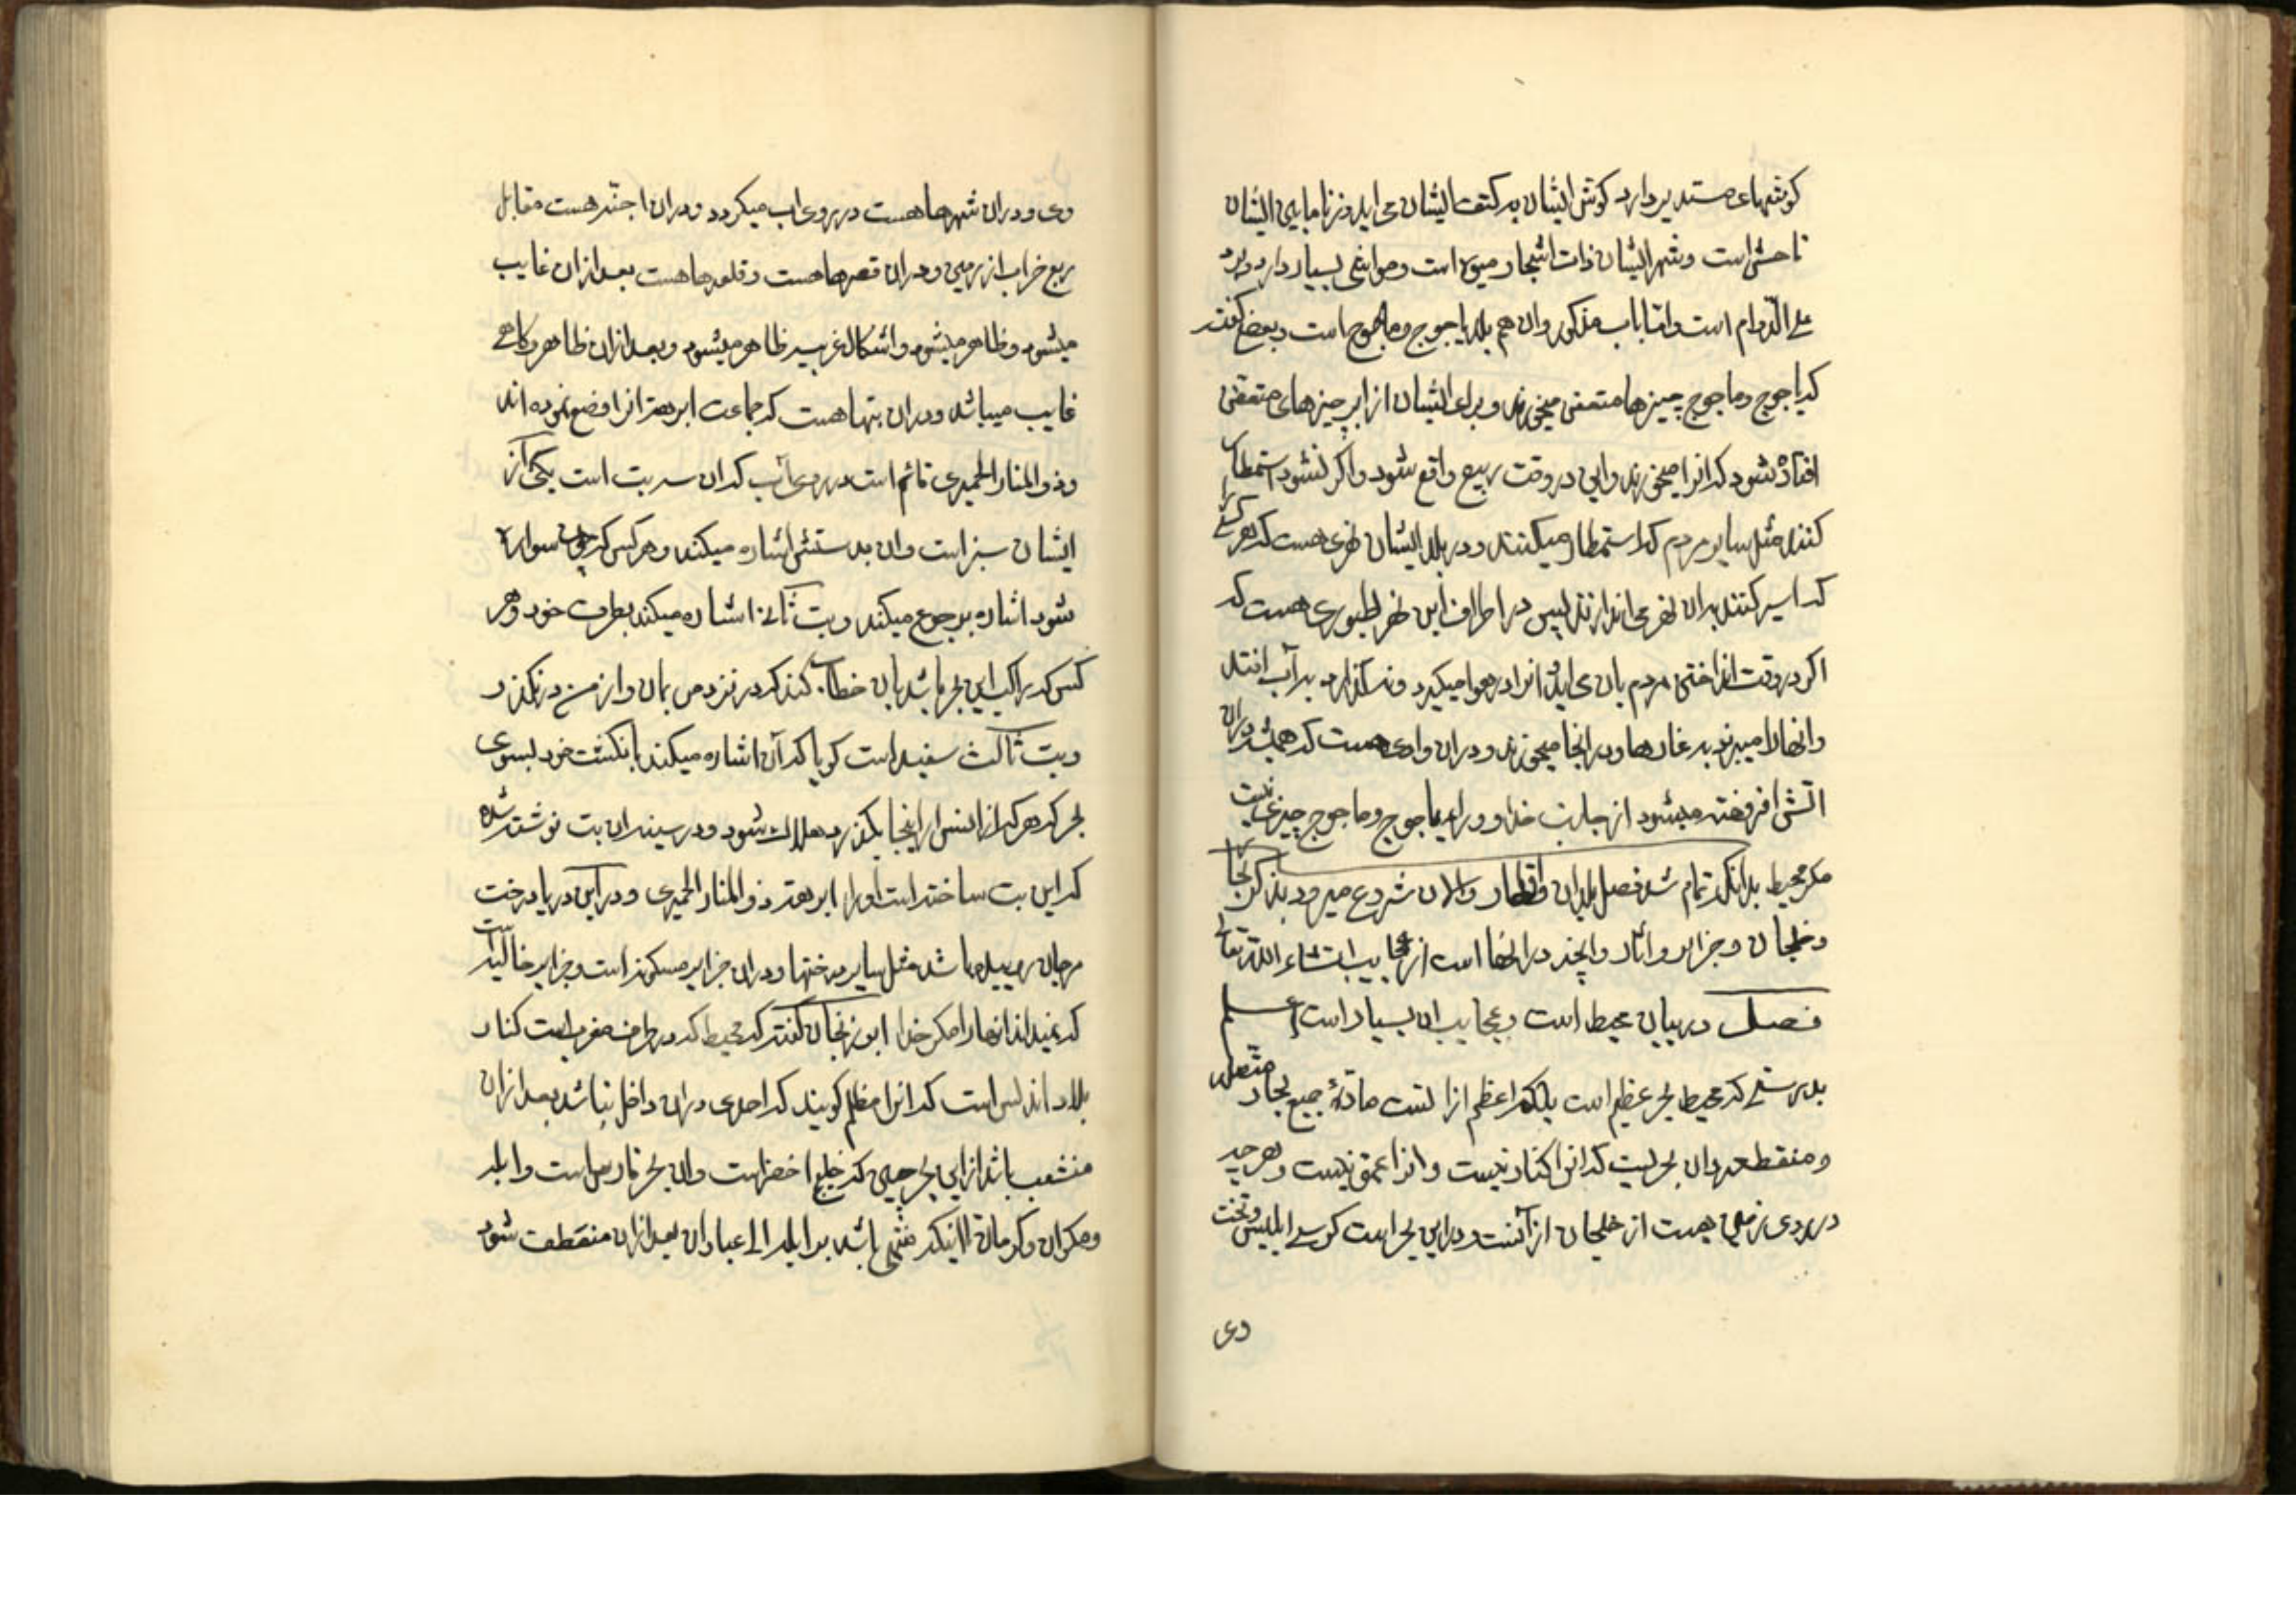 کوشهای مستدیر دارد کوش ایشان بر کتف ایشان می اید و زنا مابین ایشان
فاحش است و شهر ایشان ذات اشجار میوه است و مواشی بسیار دارد و برد
علی الدوام است و اما باب مذکور وان هم بلد یاجوج و ماجوج است و بعضی کفته
که یاجوج و ماجوج چیزها متعفن میخورند و برای ایشان از ابر چیزهای متعفن
افتاده شود که انرا میخورند و این در وقت ربیع واقع شود و اکر نشود استمطار
کنند مثل سایر مردم که استمطار میکنند و در بلد ایشان نهری هست که هر کسی را
که اسیر کنند بدان نهر می اندازند پس در اطراف این نهر طیوری هست که
اکر در وقت انداختن مردم بان می اید انرا در هوا میکیرد و نمیکذارد بر آب افتد
وانهارا میبرند به غارها و در انجا میخورند و دران وادی هست که همیشه دران
اتش افروخته میشود از جانب خدا و ورای یاجوج و ماجوج چیزی نیست
مکر محیط بدانکه تمام شد فصل بلدان واقطار والان شروع میرود بذکر بحار
و خلجان و جزایر و اثار وانچه در انها است از عجایب انشاء الله تعالی
فصل در بیان محیط است و عجایب ان بسیار است اعلم
بدرستی که محیط بحر عظیم است بلکه اعظم از انست ماده جمیع بحار متصله
و منقطعه وان بحریست که انرا کنار نیست وانرا عمق نیست و هر چه
در روی زمین هست از خلیجان از آنست و در این بحر است کرسی ابلیس و تخت
وی
وی و دران شهرها هست در روی اب میکردد و دران اجنه هست مقابل
ربع خراب از زمین و دران قصرها هست و قلعه ها هست بعد از ان غایب
میشود و ظاهر میشود و اشکال غریبه ظاهر میشود و بعد از ان ظاهر و کاهی
غایب میباشد و دران بتها هست که جماعت ابرهه انرا وضع نموده اند
وذو المنار الحمیری قائم است در روی آب که ان سه بت است یکی از
ایشان سبز است وان بدستش اشاره میکند و هر کس که سوار
شود اشاره برجوع میکند و بت ثانی اشاره میکند بطرف خود و هر
کس که راکب این بحر باشد بان خطاب کند که در نزد من بمان واز من در نکذر
و بت ثالث سفید است کویا که آن اشاره میکند بانکشت خود بسوی
بحر که هر که از انس از اینجا بکذرد هلاک شود و در سینه ان بت نوشته شده
که این بت ساخته است اورا ابرهه ذو المنار الحمیری و در این دریا درخت
مرجان روییده باشد مثل سایر درختها و دران جزایر مسکونه است و جزایر خالیه است
که نمیداند انهارا مکر خدا ابو ریحان کفته که محیط که در طرف مغرب است کنار
بلاد اندلس است که انرا مظلم کویند که احدی دران داخل نباشد بعد از ان
منشعب باشد از این بحر چین که خلیج اخضر است وان بحر فارس است وابله
و مکران و کرمان الا اینکه منتهی باشد بر ابله الی عبادان بعد از ان منقطف شود